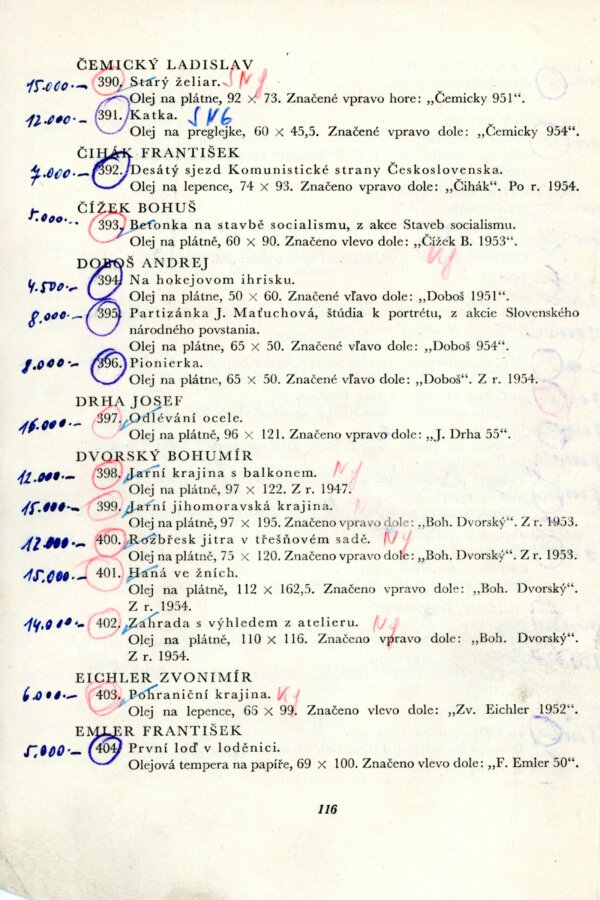 ČEMICKÝ LADISLAV
15.000.— 390. Starý želiar. SNg
Olej na plátne, 92 × 73. Značené vpravo hore: „Čemicky 951“.
12.000.— 391. Katka. SNG
Olej na preglejke, 60 × 45,5. Značené vpravo dole: „Čemicky 954“.
ČIHÁK FRANTIŠEK
7.000.— 392. Desátý sjezd Komunistické strany Československa.
Olej na lepence, 74 × 93. Značeno vpravo dole: „Čihák“. Po r. 1954.
ČÍŽEK BOHUŠ
5.000.— 393. Betonka na stavbě socialismu, z akce Staveb socialismu.
Olej na plátně, 60 × 90. Značeno vlevo dole: „Čížek B. 1953“.
Kg
DOBOŠ ANDREJ
4.500.— 394. Na hokejovom ihrisku.
Olej na plátne, 50 × 60. Značené vľavo dole: „Doboš 1951“.
8.000.— 395. Partizánka J. Maťuchová, štúdia k portrétu, z akcie Slovenského
národného povstania.
Olej na plátne, 65 × 50. Značené vľavo dole: „Doboš 954“.
8.000.— 396. Pionierka.
Olej na plátne, 65 × 50. Značené vľavo dole: „Doboš“. Z r. 1954.
DRHA JOSEF
16.000.— 397. Odlévání ocele.
Olej na plátně, 96 × 121. Značeno vpravo dole: „J. Drha 55“.
DVORSKÝ BOHUMÍR
12.000.— 398. Jarní krajina s balkonem. Ng
Olej na plátně, 97 × 122. Z r. 1947.
15.000.— 399. Jarní jihomoravská krajina. Ng
Olej na plátně, 97 × 195. Značeno vpravo dole: „Boh. Dvorský“. Z r. 1953.
12.000.— 400. Rozbřesk jitra v třešňovém sadě. Ng
Olej na plátně, 75 × 120. Značeno vpravo dole: „Boh. Dvorský“. Z r. 1953.
15.000.— 401. Haná ve žních.
Olej na plátně, 112 × 162,5. Značeno vpravo dole: „Boh. Dvorský“.
Z r. 1954.
14.000.— 402. Zahrada s výhledem z atelieru. Ng
Olej na plátně, 110 × 116. Značeno vpravo dole: „Boh. Dvorský“.
Z r. 1954.
EICHLER ZVONIMÍR
6.000.— 403. Pohraniční krajina. Kg
Olej na lepence, 66 × 99. Značeno vlevo dole: „Zv. Eichler 1952“.
EMLER FRANTIŠEK
5.000.— 404. První loď v loděnici.
Olejová tempera na papíře, 69 × 100. Značeno vlevo dole: „F. Emler 50“.
116